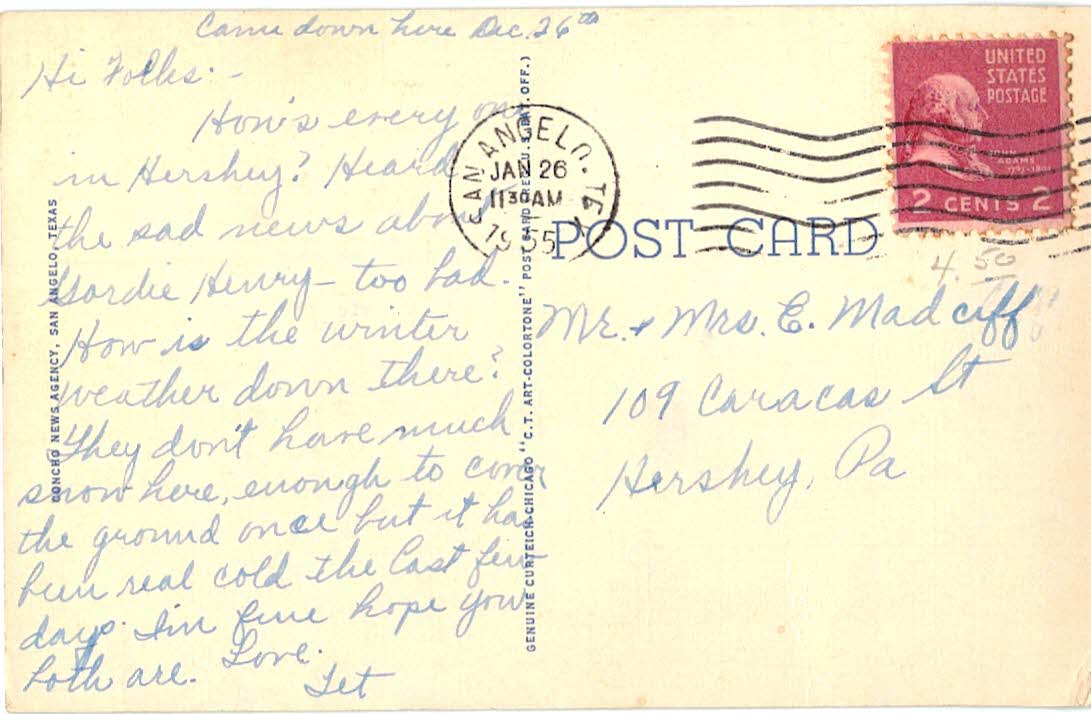 Came down here Dec. 26th
Hi Folks:-
How's every one
in Hershey? Heard
the sad news about
Gordie Henry - too bad.
How is the winter
weather down there?
They don't have much
snow here, enough to cover
the ground once but it has
been real cold the last few
days. I'm fine hope you
both are. Love.
CONCHO NEWS AGENCY, SAN ANGELO, TEXAS
GENUINE CURTEICH-CHICAGO "C.T. ART-COLORTONE" POST CARD (REG. U.S. PAT. OFF.)
SAN ANGELO. TEX
JAN 26
11 30 AM
1955
POST CARD
UNITED
STATES
POSTAGE
JOHN
ADAMS
2 CENTS 2
4.50
Mr. & Mrs. E. Madciff
109 Caracas St
Hershey, Pa